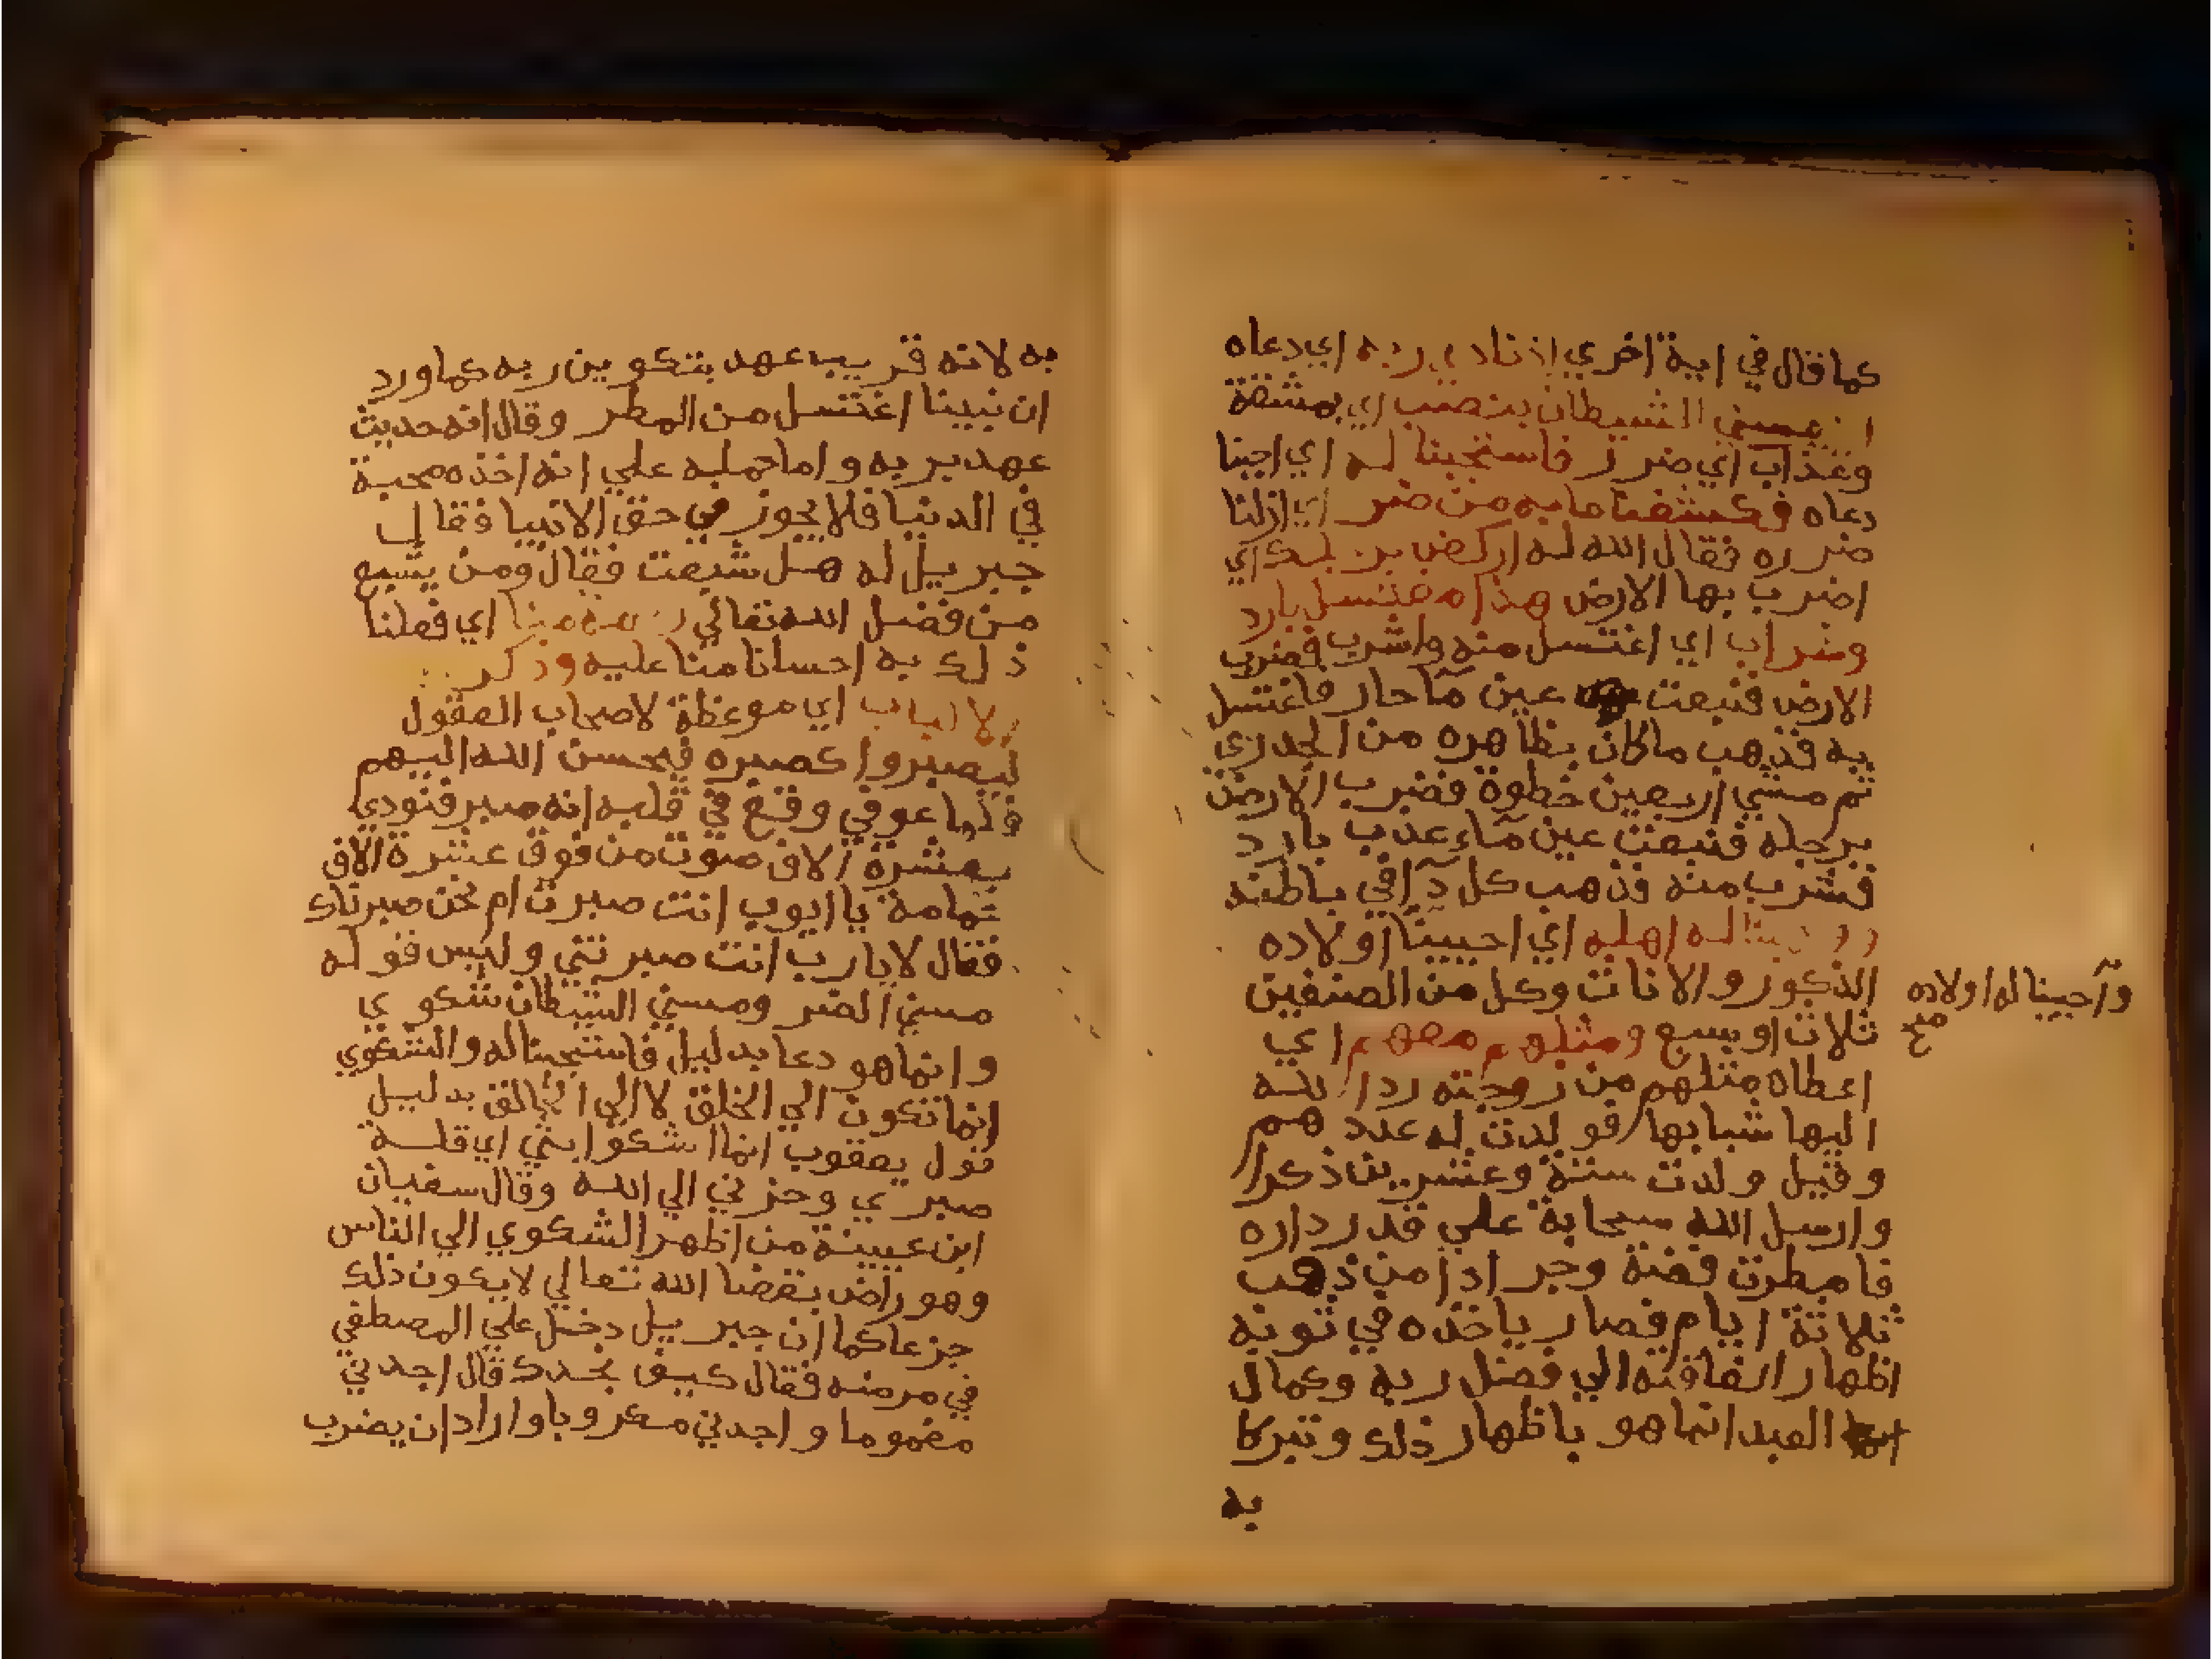 كما قال في اية اخري اذ نادي ربه اي دعاه
اني مسني الشيطان بنصب اي بمشقة
وعذاب اي ضرر فاستجبنا له اي اجبنا
دعاه فكشفنا ما به من ضر اي ازلنا
ضرره فقال الله له اركض برجلك اي
اضرب بها الارض هذا مغتسل بارد
وشراب اي اغتسل منه واشرب فضرب
الارض فنبعت عين مآ حار فاغتسل
به فذهب ما كان بظاهره من الجدري
ثم مشي اربعين خطوة فضرب الارض
برجله فنبعت عين مآء عذب بارد
فشرب منه فذهب كل دآ في باطنه
ووهبنا له اهله اي احيينا اولاده
الذكور والاناث وكل من الصنفين
وآحيينا له اولاده
صح
ثلاث او سبع ومثلهم معهم اي
اعطاه مثلهم من زوجته رد الله
اليها شبابها فولدت له عددهم
وقيل ولدت ستة وعشرين ذكرا
وارسل الله سحابة علي قدر داره
فامطرت فضة وجرادا من ذهب
ثلاثة ايام فصار ياخذه في ثوبه
اظهار الفاقته الي فضل ربه وكمال
العبد انما هو باظهار ذلك وتبركا
به
به لانه قريب عهد بتكوين ربه كما ورد
ان نبينا اغتسل من المطر وقال انه حديث
عهد بربه واما حمله علي انه اخذه محبة
في الدنيا فلا يجوز في حق الانبيا فقال
جبريل له هل شبعت فقال ومن يشبع
من فضل الله تعالي رحمة منا اي فعلنا
ذلك به احسانا منا عليه وذكر
لالباب اي موعظة لاصحاب العقول
ليصبروا كصبره فيحسن الله اليهم
فلما عوفي وقع في قلبه انه صبر فنودي
بعشرة الاف صوت من فوق عشرة الاف
غمامة يا ايوب انت صبرت ام نحن صبرناك
فقال لا يا رب انت صبرتني وليس قوله
مسني الضر ومسني الشيطان شكوي
وانما هو دعا بدليل فاستجبنا له والشكوي
انما تكون الي الخلق لا الي الخالق بدليل
قول يعقوب انما اشكوا بثي اي قلة
صبري وحزني الي الله وقال سفيان
ابن عيينة من اظهر الشكوي الي الناس
وهو راض بقضا الله تعالي لا يكون ذلك
جزعا كما ان جبريل دخل علي المصطفي
في مرضه فقال كيف تجدك قال اجدني
مغموما واجدني مكروبا واراد ان يضرب